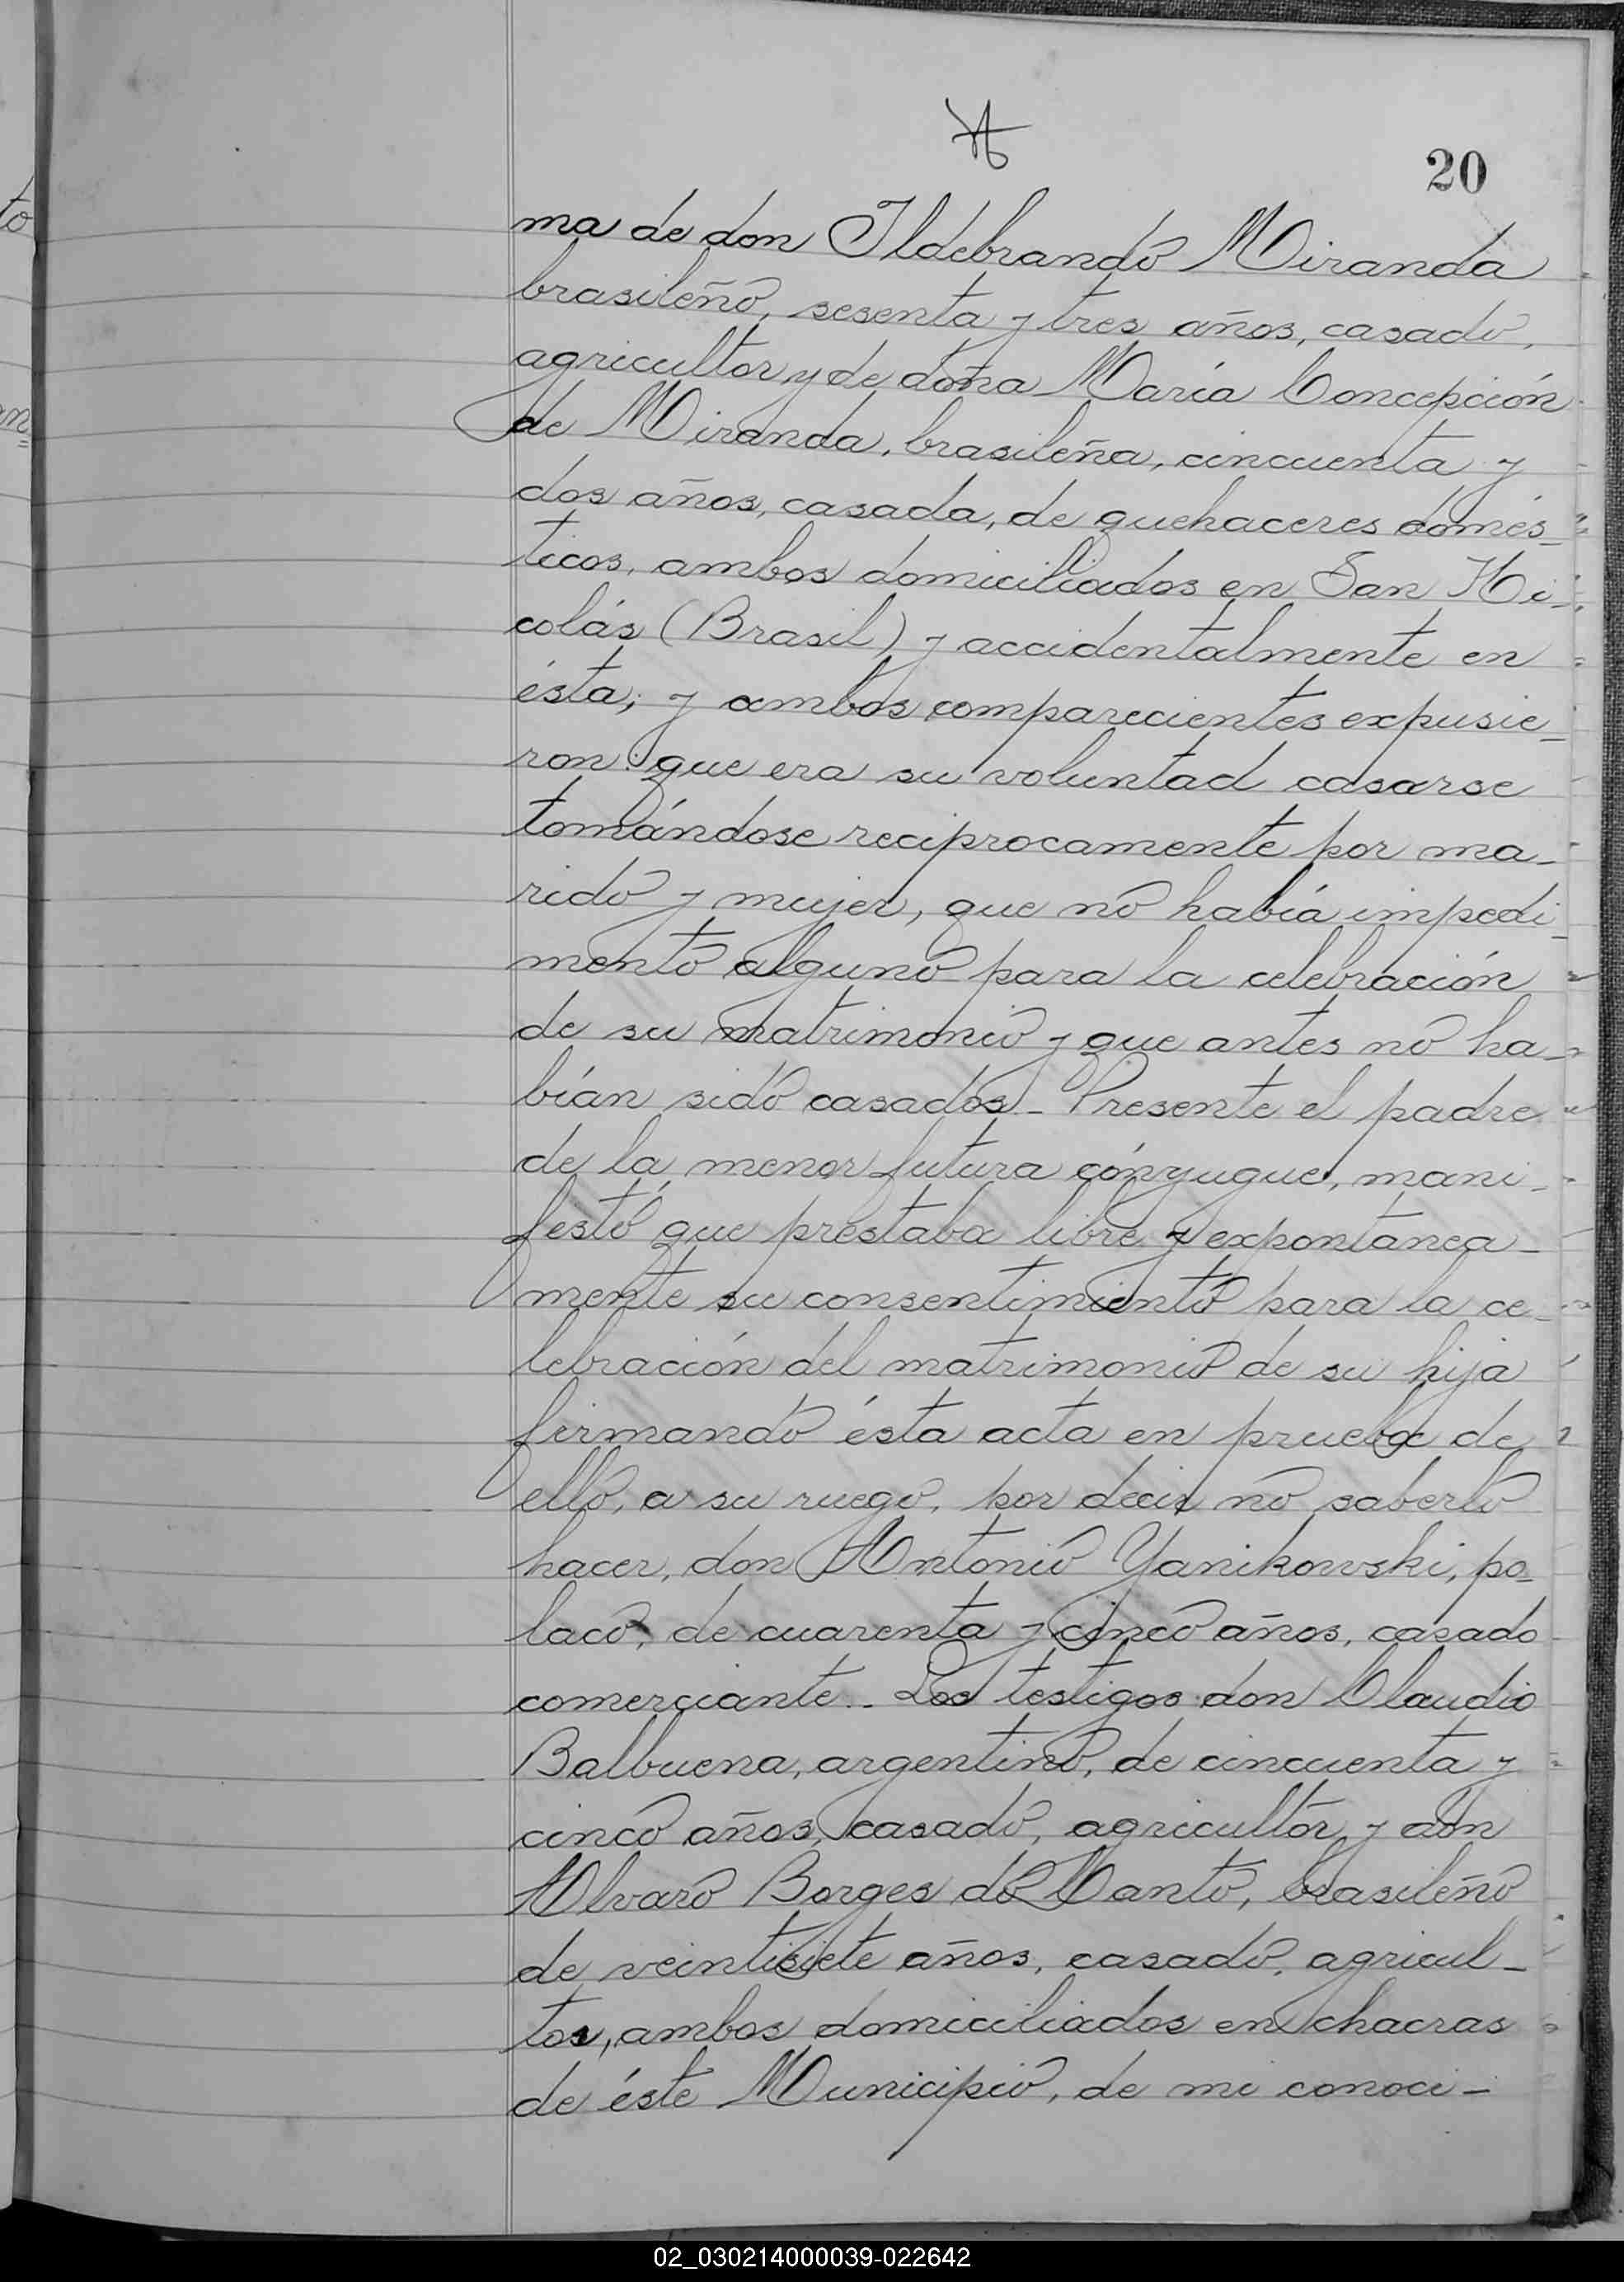 20
ma de don Ildebrando Miranda
brasileño, sesenta y tres años, casado,
agricultor y de doña María Concepción
de Miranda, brasileña, cincuenta y
dos años, casada, de quehaceres domés-
ticos, ambos domiciliados en San Ni-
colás (Brasil) y accidentalmente en
ésta; y ambos comparecientes expusie-
ron: que era su voluntad casarse
tomándose reciprocamente por ma-
rido y mujer, que no había impedi-
mento alguno para la celebración
de su matrimonio y que antes no ha-
bían sido casados - Presente el padre
de la menor futura cónyugue, mani-
festó que prestaba libre y expontanea-
mente su consentimiento para la ce-
lebración del matrimonio de su hija
firmando ésta acta en prueba de
ello, a su ruego, por decir no saberlo
hacer, don Antonio Yanikowski, po-
laco, de cuarenta y cinco años, casado
comerciante.- Los testigos don Claudio
Balbuena, argentino, de cincuenta y
cinco años, casado, agricultor y don
Alvaro Borges do Canto, brasileño
de veintisiete años, casado, agricul-
tor, ambos domiciliados en chacras
de éste Municipio, de mi conoci-
02_030214000039-022642